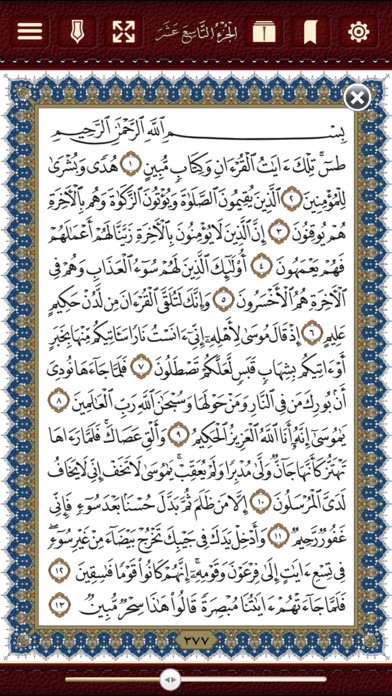 الجزء التاسع عشر
بِسْمِ اللَّهِ الرَّحْمَٰنِ الرَّحِيمِ
طسٓ ۚ تِلْكَ ءَايَٰتُ الْقُرْءَانِ وَكِتَابٍ مُّبِينٍ ١ هُدًى وَبُشْرَىٰ
لِلْمُؤْمِنِينَ ٢ الَّذِينَ يُقِيمُونَ الصَّلَوٰةَ وَيُؤْتُونَ الزَّكَوٰةَ وَهُم بِالْءَاخِرَةِ
هُمْ يُوقِنُونَ ٣ إِنَّ الَّذِينَ لَا يُؤْمِنُونَ بِالْءَاخِرَةِ زَيَّنَّا لَهُمْ أَعْمَٰلَهُمْ
فَهُمْ يَعْمَهُونَ ٤ أُو۟لَٰٓئِكَ الَّذِينَ لَهُمْ سُوٓءُ الْعَذَابِ وَهُمْ فِى
الْءَاخِرَةِ هُمُ الْأَخْسَرُونَ ٥ وَإِنَّكَ لَتُلَقَّى الْقُرْءَانَ مِن لَّدُنْ حَكِيمٍ
عَلِيمٍ ٦ إِذْ قَالَ مُوسَىٰ لِأَهْلِهِۦٓ إِنِّىٓ ءَانَسْتُ نَارًا سَـَٔاتِيكُم مِّنْهَا بِخَبَرٍ
أَوْ ءَاتِيكُم بِشِهَابٍ قَبَسٍ لَّعَلَّكُمْ تَصْطَلُونَ ٧ فَلَمَّا جَآءَهَا نُودِىَ
أَنۢ بُورِكَ مَن فِى النَّارِ وَمَنْ حَوْلَهَا وَسُبْحَٰنَ اللَّهِ رَبِّ الْعَٰلَمِينَ ٨
يَٰمُوسَىٰٓ إِنَّهُۥٓ أَنَا اللَّهُ الْعَزِيزُ الْحَكِيمُ ٩ وَأَلْقِ عَصَاكَ ۚ فَلَمَّا رَءَاهَا
تَهْتَزُّ كَأَنَّهَا جَآنٌّ وَلَّىٰ مُدْبِرًا وَلَمْ يُعَقِّبْ ۚ يَٰمُوسَىٰ لَا تَخَفْ إِنِّى لَا يَخَافُ
لَدَىَّ الْمُرْسَلُونَ ١٠ إِلَّا مَن ظَلَمَ ثُمَّ بَدَّلَ حُسْنًۢا بَعْدَ سُوٓءٍ فَإِنِّى
غَفُورٌ رَّحِيمٌ ١١ وَأَدْخِلْ يَدَكَ فِى جَيْبِكَ تَخْرُجْ بَيْضَآءَ مِنْ غَيْرِ سُوٓءٍ ۖ
فِى تِسْعِ ءَايَٰتٍ إِلَىٰ فِرْعَوْنَ وَقَوْمِهِۦٓ ۚ إِنَّهُمْ كَانُوا۟ قَوْمًا فَٰسِقِينَ ١٢
فَلَمَّا جَآءَتْهُمْ ءَايَٰتُنَا مُبْصِرَةً قَالُوا۟ هَٰذَا سِحْرٌ مُّبِينٌ ١٣
٣٧٧